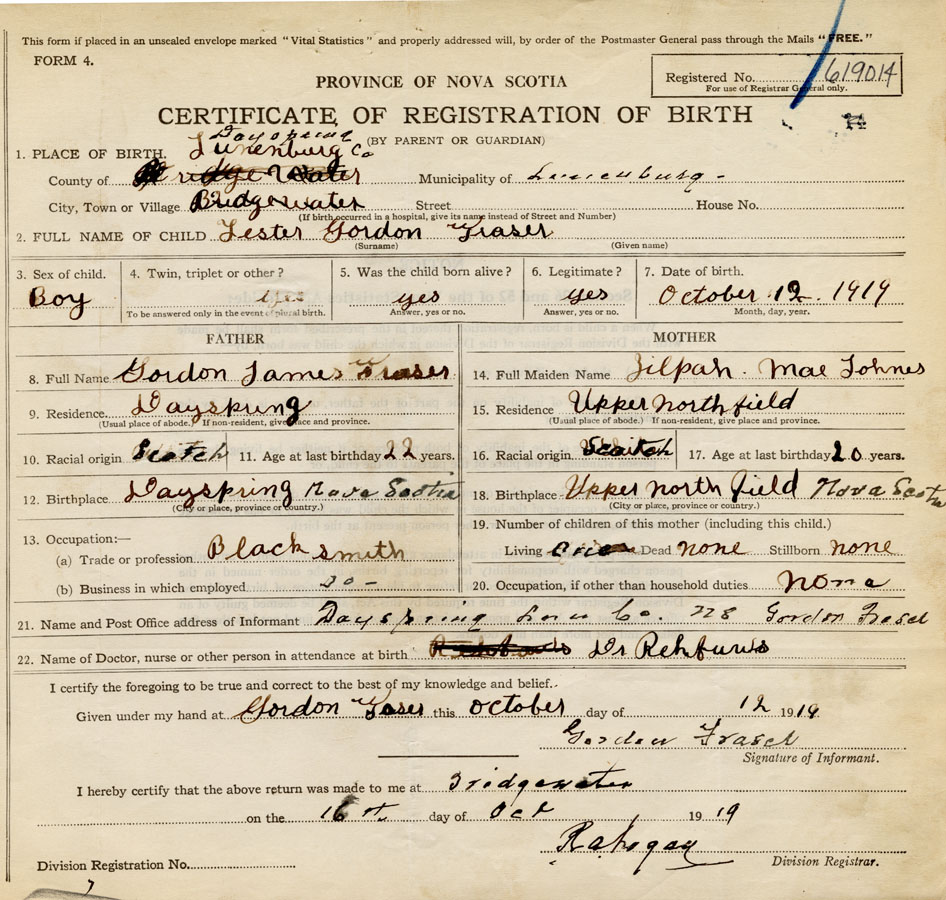 This form if placed in an unsealed envelope marked "Vital Statistics" and properly addressed will, by order of the Postmaster General pass through the Mails "FREE."
FORM 4.
PROVINCE OF NOVA SCOTIA
Registered No. 619014
For use of Registrar General only.
CERTIFICATE OF REGISTRATION OF BIRTH
14
(BY PARENT OR GUARDIAN)
Dayspring
1. PLACE OF BIRTH. Lunenburg Co
County of Bridgewater Municipality of Lunenburg -
City, Town or Village Bridgewater Street House No.
(If birth occurred in a hospital, give its name instead of Street and Number)
2. FULL NAME OF CHILD Lester Gordon Fraser
(Surname) (Given name)
3. Sex of child. 4. Twin, triplet or other? 5. Was the child born alive? 6. Legitimate? 7. Date of birth.
Boy yes yes yes October 12. 1919
To be answered only in the event of plural birth. Answer, yes or no. Answer, yes or no. Month, day, year.
FATHER MOTHER
8. Full Name Gordon James Fraser 14. Full Maiden Name Zilpah. Mae Johnes
9. Residence. Dayspring 15. Residence Upper northfield
(Usual place of abode. If non-resident, give place and province. (Usual place of abode. If non-resident, give place and province.
10. Racial origin Scotch 11. Age at last birthday 22 years. 16. Racial origin. 17. Age at last birthday 20 years.
12. Birthplace Dayspring Nova Scotia 18. Birthplace Upper north field Nova Scotia
(City or place, province or country.) (City or place, province or country.)
13. Occupation:— 19. Number of children of this mother (including this child.)
(a) Trade or profession Black smith Living one Dead none Stillborn none
(b) Business in which employed 20. Occupation, if other than household duties none
21. Name and Post Office address of Informant Dayspring Lun Co. Gordon Frasel
22. Name of Doctor, nurse or other person in attendance at birth Dr Rehfuris
I certify the foregoing to be true and correct to the best of my knowledge and belief.
Given under my hand at Gordon Fraser this october day of 12 1919
Gordon Frasel
Signature of Informant.
I hereby certify that the above return was made to me at Bridgewater
on the 16 th. day of Oct 1919
Division Registration No. Division Registrar.